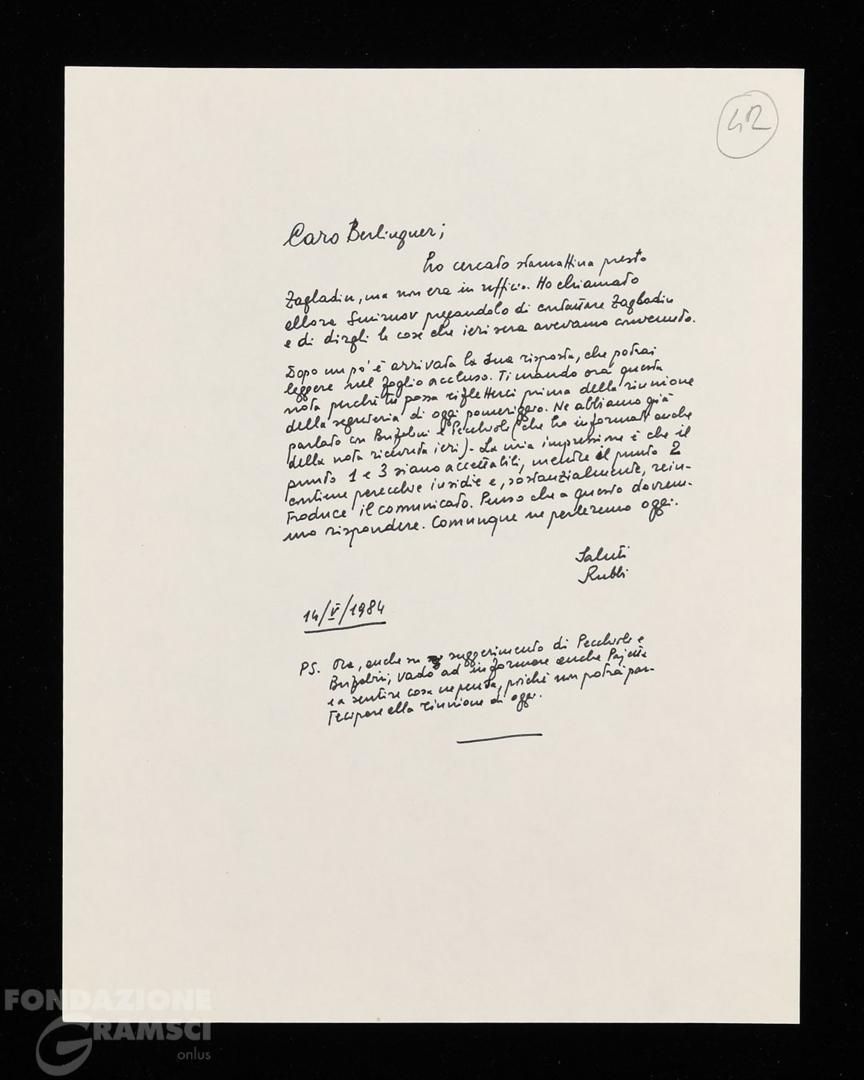 42
Caro Berlinguer;
ho cercato stamattina presto
Zagladin, ma non era in ufficio. Ho chiamato
allora Smirnov pregandolo di contattare Zagladin
e di dirgli le cose che ieri sera avevamo convenuto.
Dopo un po' è arrivata la sua risposta, che potrai
leggere nel foglio accluso. Ti mando ora questa
nota perché tu possa rifletterci prima della riunione
della segreteria di oggi pomeriggio. Ne abbiamo già
parlato con Bufalini e Pecchioli (che ho informati anche
della nota ricevuta ieri). La mia impressione è che il
punto 1 e 3 siano accettabili, mentre il punto 2
contiene parecchie insidie e, sostanzialmente, rein-
troduce il comunicato. Penso che a questo dovrem-
mo rispondere. Comunque ne parleremo oggi.
Saluti
Rubbi
14/V/1984
PS. Ora, anche su suggerimento di Pecchioli e
Bufalini, vado ad informare anche Pajetta
e a sentire cosa ne pensa, poiché non potrà par-
tecipare alla riunione di oggi.
FONDAZIONE
GRAMSCI
onlus